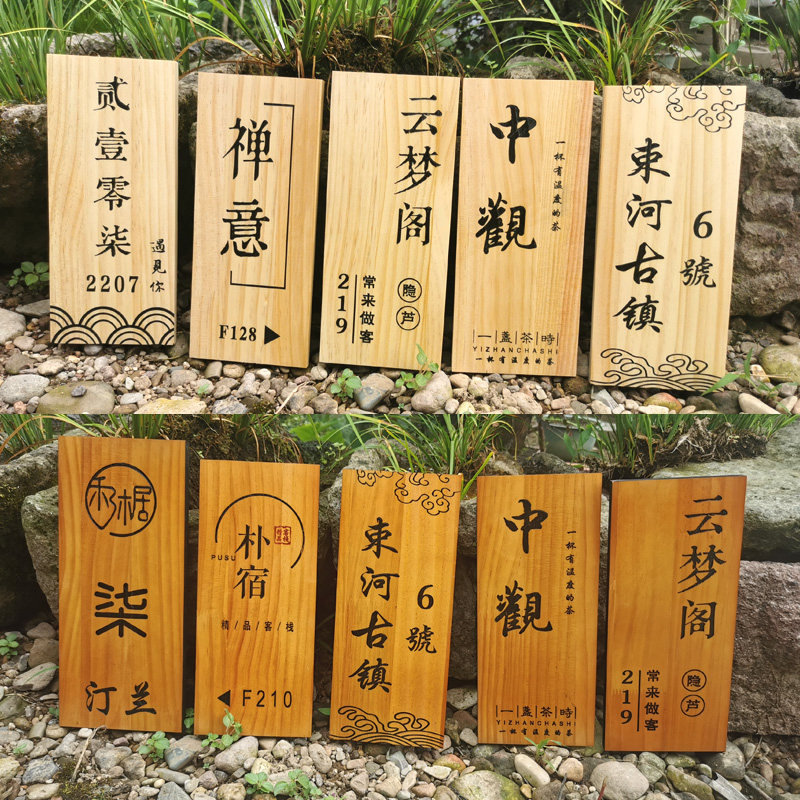 贰壹零柒
2207
遇見你
禅意
F128
云梦阁
隐芦
常来做客
219
中觀
一杯有温度的茶
一盏茶時
YIZHANCHASHI
一杯有温度的茶
束河古镇
6號
柒
汀兰
朴宿
PUSU
精/品/客/栈
F210
束河古镇
6號
中觀
一杯有温度的茶
一盏茶時
YIZHANCHASHI
一杯有温度的茶
云梦阁
隐芦
常来做客
219